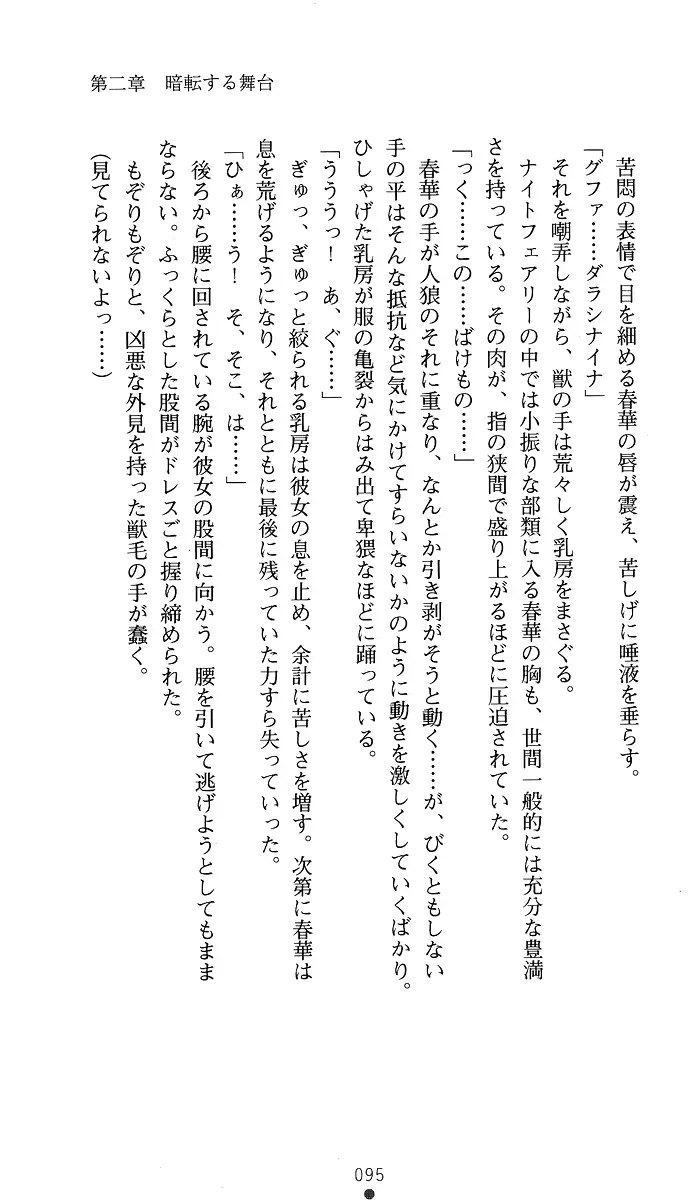 第二章　暗転する舞台
苦悶の表情で目を細める春華の唇が震え、苦しげに唾液を垂らす。
「グファ……ダラシナイナ」
それを嘲弄しながら、獣の手は荒々しく乳房をまさぐる。
ナイトフェアリーの中では小振りな部類に入る春華の胸も、世間一般的には充分な豊満
さを持っている。その肉が、指の狭間で盛り上がるほどに圧迫されていた。
「っく……この……ばけもの……」
春華の手が人狼のそれに重なり、なんとか引き剥がそうと動く……が、びくともしない
手の平はそんな抵抗など気にかけてすらいないかのように動きを激しくしていくばかり。
ひしゃげた乳房が服の亀裂からはみ出て卑猥なほどに踊っている。
「うううっ！　あ、ぐ……」
ぎゅっ、ぎゅっと絞られる乳房は彼女の息を止め、余計に苦しさを増す。次第に春華は
息を荒げるようになり、それとともに最後に残っていた力すら失っていった。
「ひぁ……う！　そ、そこ、は……」
後ろから腰に回されている腕が彼女の股間に向かう。腰を引いて逃げようとしてもまま
ならない。ふっくらとした股間がドレスごと握り締められた。
もぞりもぞりと、凶悪な外見を持った獣毛の手が蠢く。
（見てられないよっ……）
095